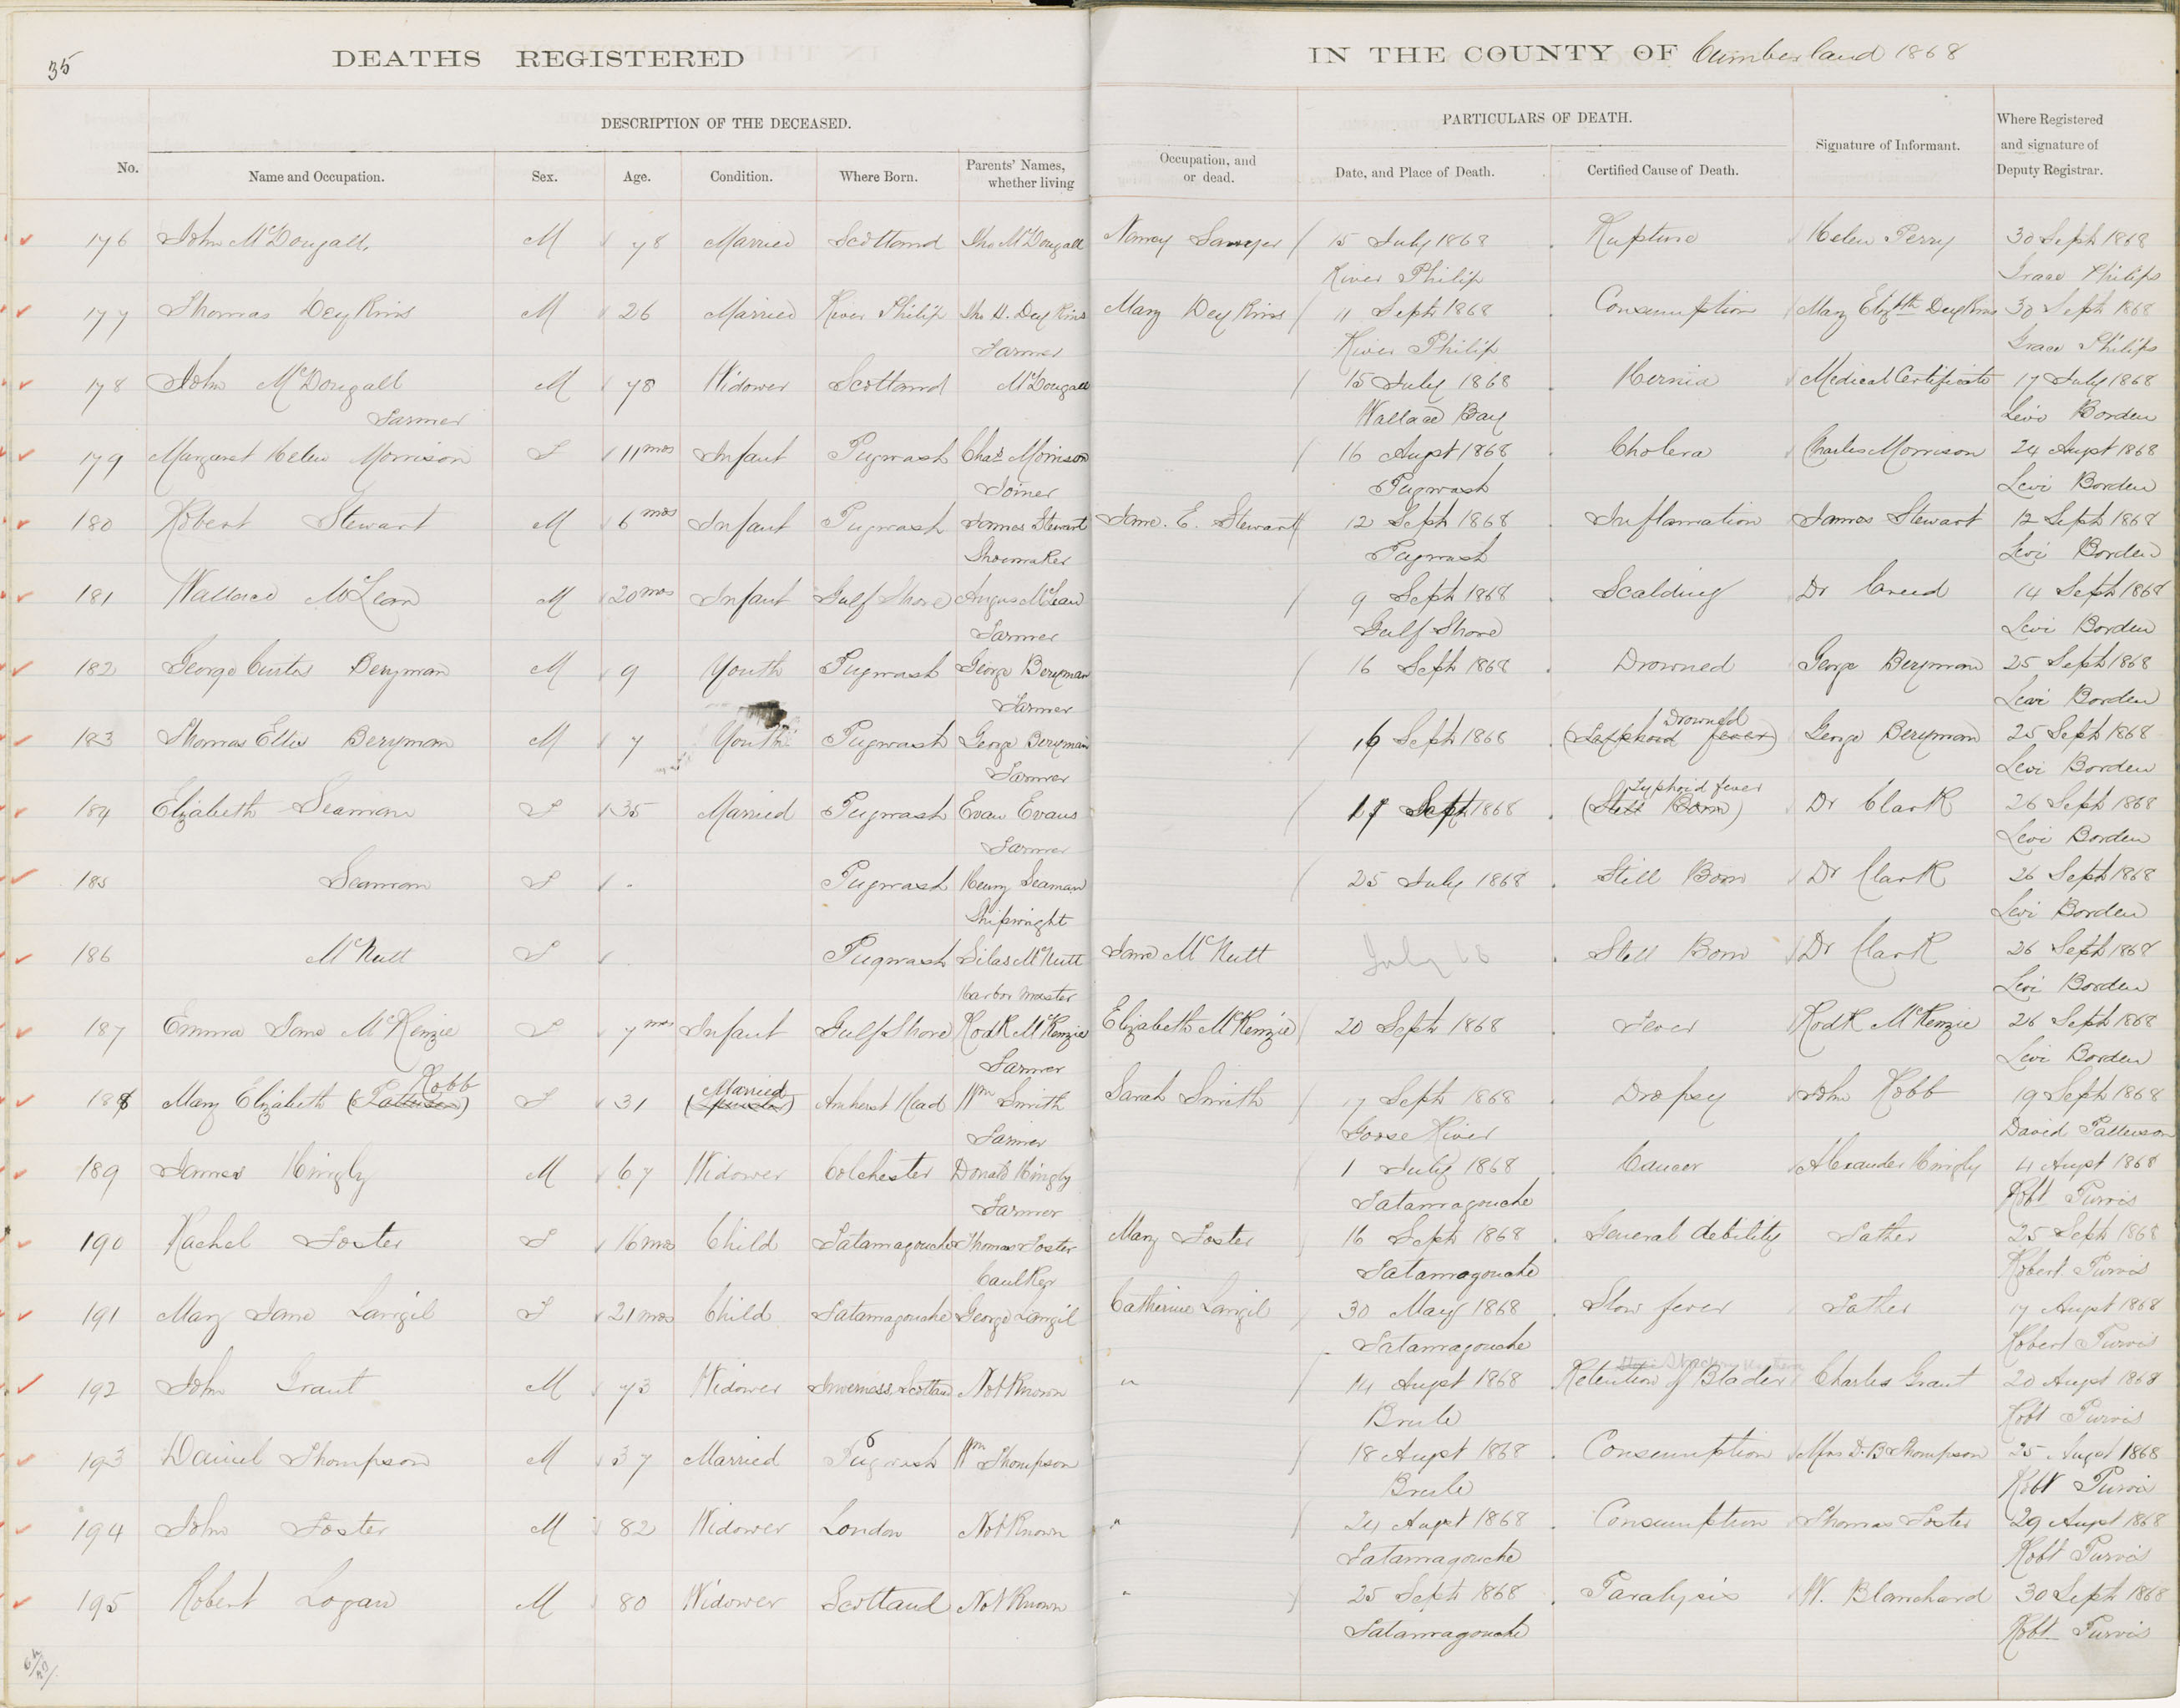 35
DEATHS REGISTERED IN THE COUNTY OF Cumberland 1868
DESCRIPTION OF THE DECEASED. PARTICULARS OF DEATH.
No. Name and Occupation. Sex. Age. Condition. Where Born. Parents' Names, whether living Occupation, and or dead. Date, and Place of Death. Certified Cause of Death. Signature of Informant. Where Registered and signature of Deputy Registrar.
176 John McDougall. M 78 Married Scotland Jno McDougall Nancy Sawyer 15 July 1868 Rupture Helen Perry 30 Sept 1868
River Philip Grace Philips
177 Thomas DeyKins M 26 Married River Philip Jno H. DeyKins Mary DeyKins 11 Sept 1868 Consumption Mary Elizbth DeyKins 30 Sept 1868
Farmer River Philip Grace Philips
178 John McDougall M 78 Widower Scotland McDougall 15 July 1868 Hernia Medical Certificate 17 July 1868
Farmer Wallace Bay Levi Borden
179 Margaret Helen Morrison F 11 mos Infant Pugwash Chas Morrison 16 Augst 1868 Cholera Charles Morrison 24 Augst 1868
Joiner Pugwash Levi Borden
180 Robert Stewart M 6 mos Infant Pugwash James Stewart Jane. E. Stewart 12 Sept 1868 Inflamation James Stewart 12 Sept 1868
Shoemaker Pugwash Levi Borden
181 Wallace McLean M 20 mos Infant Gulf Shore Angus McLean 9 Sept 1868 Scalding Dr Creed 14 Sept 1868
Farmer Gulf Shore Levi Borden
182 George Curtis Berryman M 9 Youth Pugwash George Berryman 16 Sept 1868 Drowned George Berryman 25 Sept 1868
Farmer Levi Borden
Drowned
183 Thomas Ellis Berryman M 7 Youth Pugwash George Berryman 16 Sept 1868 (Typhoid fever) George Berryman 25 Sept 1868
Farmer Levi Borden
Typhoid fever
184 Elizabeth Seaman F 35 Married Pugwash Evan Evans 17 Sept 1868 (Still Born) Dr Clark 26 Sept 1868
Farmer Levi Borden
185 Seaman F Pugwash Henry Seaman 25 July 1868 Still Born Dr Clark 26 Sept 1868
Shipwright Levi Borden
186 McNutt F Pugwash Silas McNutt Jane McNutt July 68 Still Born Dr Clark 26 Sept 1868
Harbor Master Levi Borden
187 Emma Jane McKenzie F 7 mos Infant Gulf Shore Rodk McKenzie Elizabeth McKenzie 20 Sept 1868 Fever Rodk McKenzie 26 Sept 1868
Farmer Levi Borden
Robb Married
188 Mary Elizabeth (Patterson) F 31 (Spinster) Amherst Head Wm Smith Sarah Smith 17 Sept 1868 Dropsy John Robb 19 Sept 1868
Farmer Goose River David Patterson
189 James Kingly M 67 Widower Colchester Donald Kingly 1 July 1868 Cancer Alexander Kingly 4 Augst 1868
Farmer Tatamagouche Robt Purvis
190 Rachel Foster F 16 mos Child Tatamagouche Thomas Foster Mary Foster 16 Sept 1868 General debility Father 25 Sept 1868
Caulker Tatamagouche Robert Purvis
191 Mary Jane Langil F 21 mos Child Tatamagouche George Langil Catherine Langil 30 May 1868 Slow fever Father 17 Augst 1868
Tatamagouche Robert Purvis
192 John Grant M 73 Widower Inverness, Scotland Not Known " 14 Augst 1868 Retention of Blader Charles Grant 20 Augst 1868
Brule Robt Purvis
193 Daniel Thompson M 37 Married Pugwash Wm Thompson 18 Augst 1868 Consumption Mrs D. B Thompson 25 Augst 1868
Brule Robt Purvis
194 John Foster M 82 Widower London Not Known " 24 Augst 1868 Consumption Thomas Foster 29 Augst 1868
Tatamagouche Robt Purvis
195 Robert Logan M 80 Widower Scotland Not Known " 25 Sept 1868 Paralysis W. Blanchard 30 Sept 1868
Tatamagouche Robt Purvis